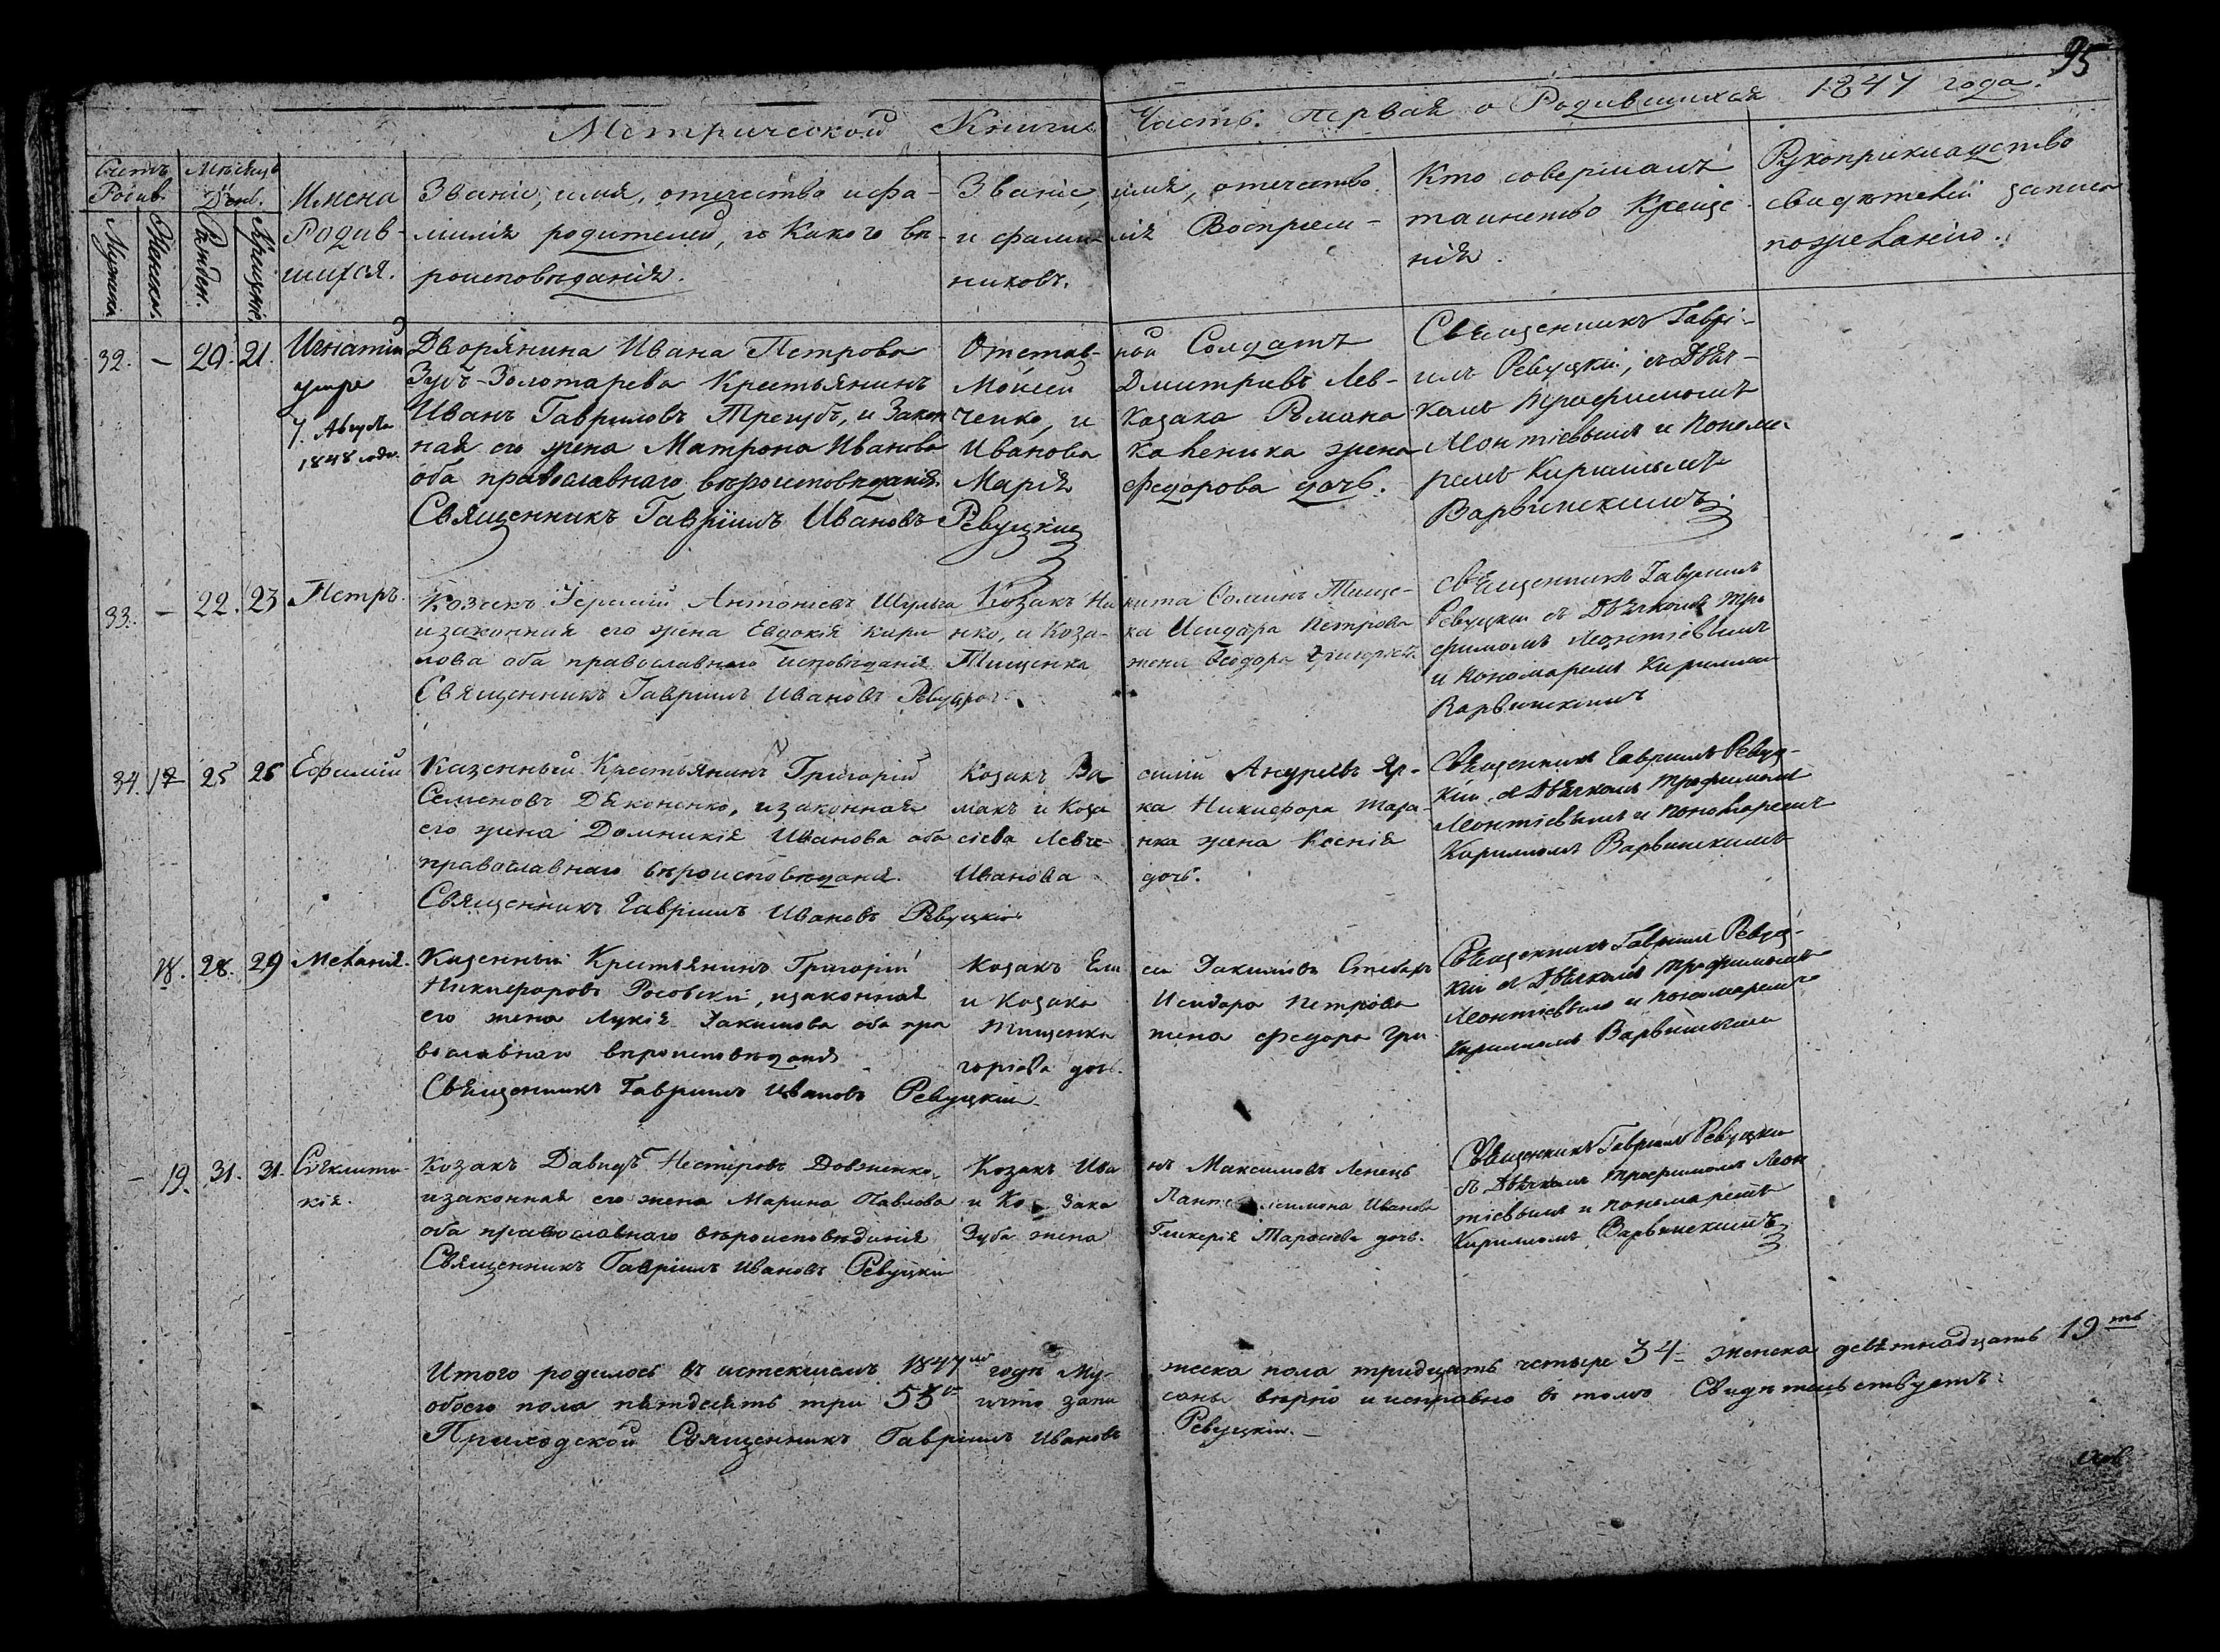 95
Метрической Книги Часть первая о Родившихся 1847 года.
Счетъ Родив.
Мужеска
Женска.
Мѣсяцъ День.
Рожден.
Крещенi.
Имена
Родив-
шихся.
Званiе, имя, отечество и фа-
милiя родителей, и какого вѣ-
роисповѣданiя.
Званiе, имя, отечество
и фамилiя Воспрiем-
никовъ.
Кто совершалъ
таинство Креще
нiя.
Рукоприкладство
свидѣтелей записи
по желанiю.
32. — 20. 21.
Игнатiй
умре
7. Августа
1848 года.
Дворянина Ивана Петрова
Зуб-Золотарева Крестьянинъ
Иванъ Гавриловъ Трегубъ, и Закон
ная его жена Матрона Иванова
оба православнаго вѣроисповѣданiя.
Священникъ Гаврiилъ Ивановъ Ревуцкiй
Отстав-ной Солдатъ
Мойсей Дмитрiевъ Лев-
ченко, и Козака Романа
Иванова Каленика жена
Марiя Федорова дочь.
Священникъ Гаврi-
илъ Ревуцкiй, съ Дьяч-
комъ Трофимомъ
Леонтiевымъ и Понома-
ремъ Кирилломъ
Варвинскимъ
33. — 22. 23
Петръ.
Козакъ Iеремiй Антонiевъ Шульга
и законная его жена Евдокiя Кири
лова оба православнаго исповѣданiя
Священникъ Гаврiилъ Ивановъ Ревуцкiй
Козакъ Никита Фоминъ Тище-
нко, и Коза-ка Исидора Петрова
Тищенка жена Феодора Григорiева
Священникъ Гаврiилъ
Ревуцкiй съ Дьячкомъ Тро
фимомъ Леонтiевымъ
и Пономаремъ Кирилломъ
Варвинскимъ
34. 17 25 26
Ефимiй
Казенный Крестьянинъ Григорiй
Семеновъ Дяконенко, и законная
его жена Домникiя Иванова оба
православнаго вѣроисповѣданiя.
Священникъ Гаврiилъ Ивановъ Ревуцкiй
Козакъ Василiй Андреевъ Яр-
макъ и Козака Никифора Тара-
сiева Левче-нка жена Ксенiя
Иванова дочь.
Священникъ Гаврiилъ Ревуц-
кiй съ Дьячкомъ Трофимомъ
Леонтiевымъ и Пономаремъ
Кирилломъ Варвинскимъ
18. 28. 29
Меланiя.
Казенный Крестьянинъ Григорiй
Никифоровъ Росовскiй, и законная
его жена Лукiя Iакимова оба пра
вославнаго вѣроисповѣданiя
Священникъ Гаврiилъ Ивановъ Ревуцкiй
Козакъ Ели сей Iакимовъ
и Козака Исидора Петрова
Тищенка жена Федора Гри
горiева дочь.
Священникъ Гаврiилъ Ревуц-
кiй съ Дьячкомъ Трофимомъ
Леонтiевымъ и Пономаремъ
Кирилломъ Варвинскимъ
— 19. 31. 31.
Сѵнклити-
кiя.
Козакъ Давидъ Нестеровъ Довженко,
и законная его жена Марина Павлова
оба православнаго вѣроисповѣданiя
Священникъ Гаврiилъ Ивановъ Ревуцкiй
Козакъ Иванъ Максимовъ Ленецъ
и Козака Пантелеимона Иванова
Зуба жена Гликерiя Тарасiева дочь.
Священникъ Гаврiилъ Ревуцкiй
съ Дьячкомъ Трофимомъ Леон
тiевымъ и Пономаремъ
Кирилломъ Варвинскимъ
Итого родилось въ истекшемъ 1847мъ годѣ му-жеска пола тридцать четыре 34— женска девятнадцать 19ть
обоего пола пятдесятъ три 53и что запи саны вѣрно и исправно въ томъ Свидѣтельствуетъ:
Приходской Священникъ Гаврiилъ Ивановъ Ревуцкiй.—